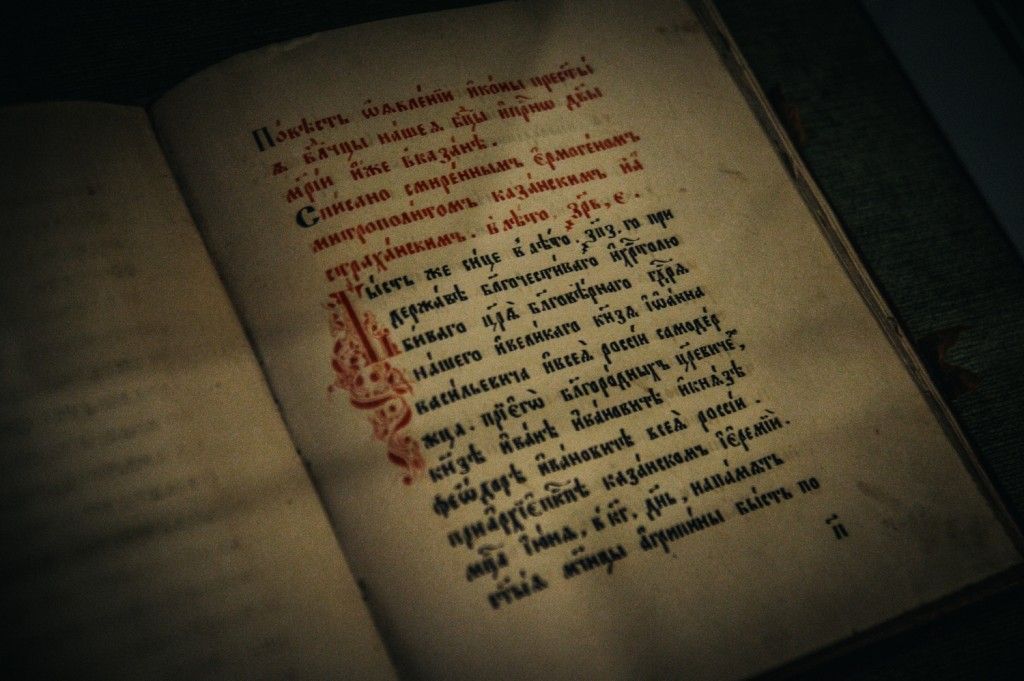 По́вѣсть ѡ҆ꙗвле́нїи и҆ко́ны прест҃ы́
ѧ вл҃чцы на́шеѧ бц҃ы и҆прⷭ҇нѡ дв҃ы
мр҃і́и и҆́же вкаꙁа́нѣ.
Спи́сано смире́ннымъ є҆рмоге́номъ
митрополи́томъ каꙁа́нскимъ и҆а҆
страха́нскимъ. влѣ́то ҂ꙁр҃в, є҃.
Бы́сть же си́це влѣ́то ҂ꙁп҃ꙁ, го при
держа́вѣ бл҃гочести́ваго и҆хр҃толю
би́ваго цр҃ѧ̀ бл҃говѣ́рнаго гд҃рѧ
на́шего и҆вели́каго кн҃ѕѧ і҆ѡа́нна
васи́льевича и҆всеѧ̀ россі́и самоде́р
жца. прие҆гѡ̀ бл҃горо́дныхъ цр҃евичеⷯ,
кн҃ѕѣ и҆ва́нѣ и҆ва́новитѣ и҆кнѧ́ѕѣ
фео́дорѣ и҆ва́новичѣ всеѧ̀ россі́и.
приа҆рхїеп҃кпѣ каꙁа́нскомъ і҆ереми́и.
мц҃а і҆ю́нѧ, вк҃г, дн҃ь, напа́мѧть
ст҃ы́ѧ мч҃ницы а҆грипи́ны бы́сть по
п҃і